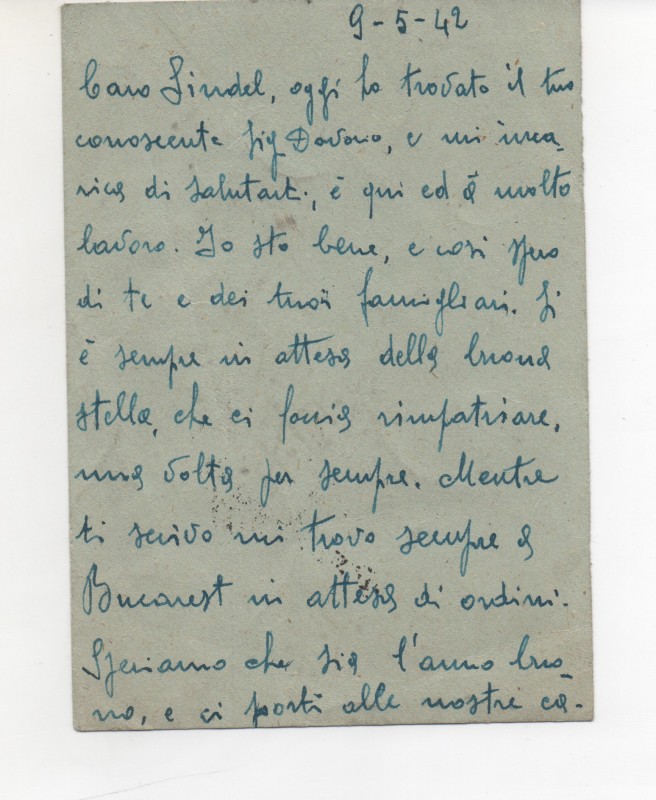 9-5-42
Caro Lindel, oggi ho trovato il tuo
conoscente Sig. e mi inca-
rica di salutart., è qui ed à molto
lavoro. Io sto bene, e così spero
di te e dei tuoi famigliari. Si
è sempre in attesa della buona
stella, che ci faccia rimpatriare,
una volta per sempre. Mentre
ti scrivo mi trovo sempre a
Bucarest in attesa di ordini.
Speriamo che sia l'anno buo-
no, e ci porti alle nostre ca-